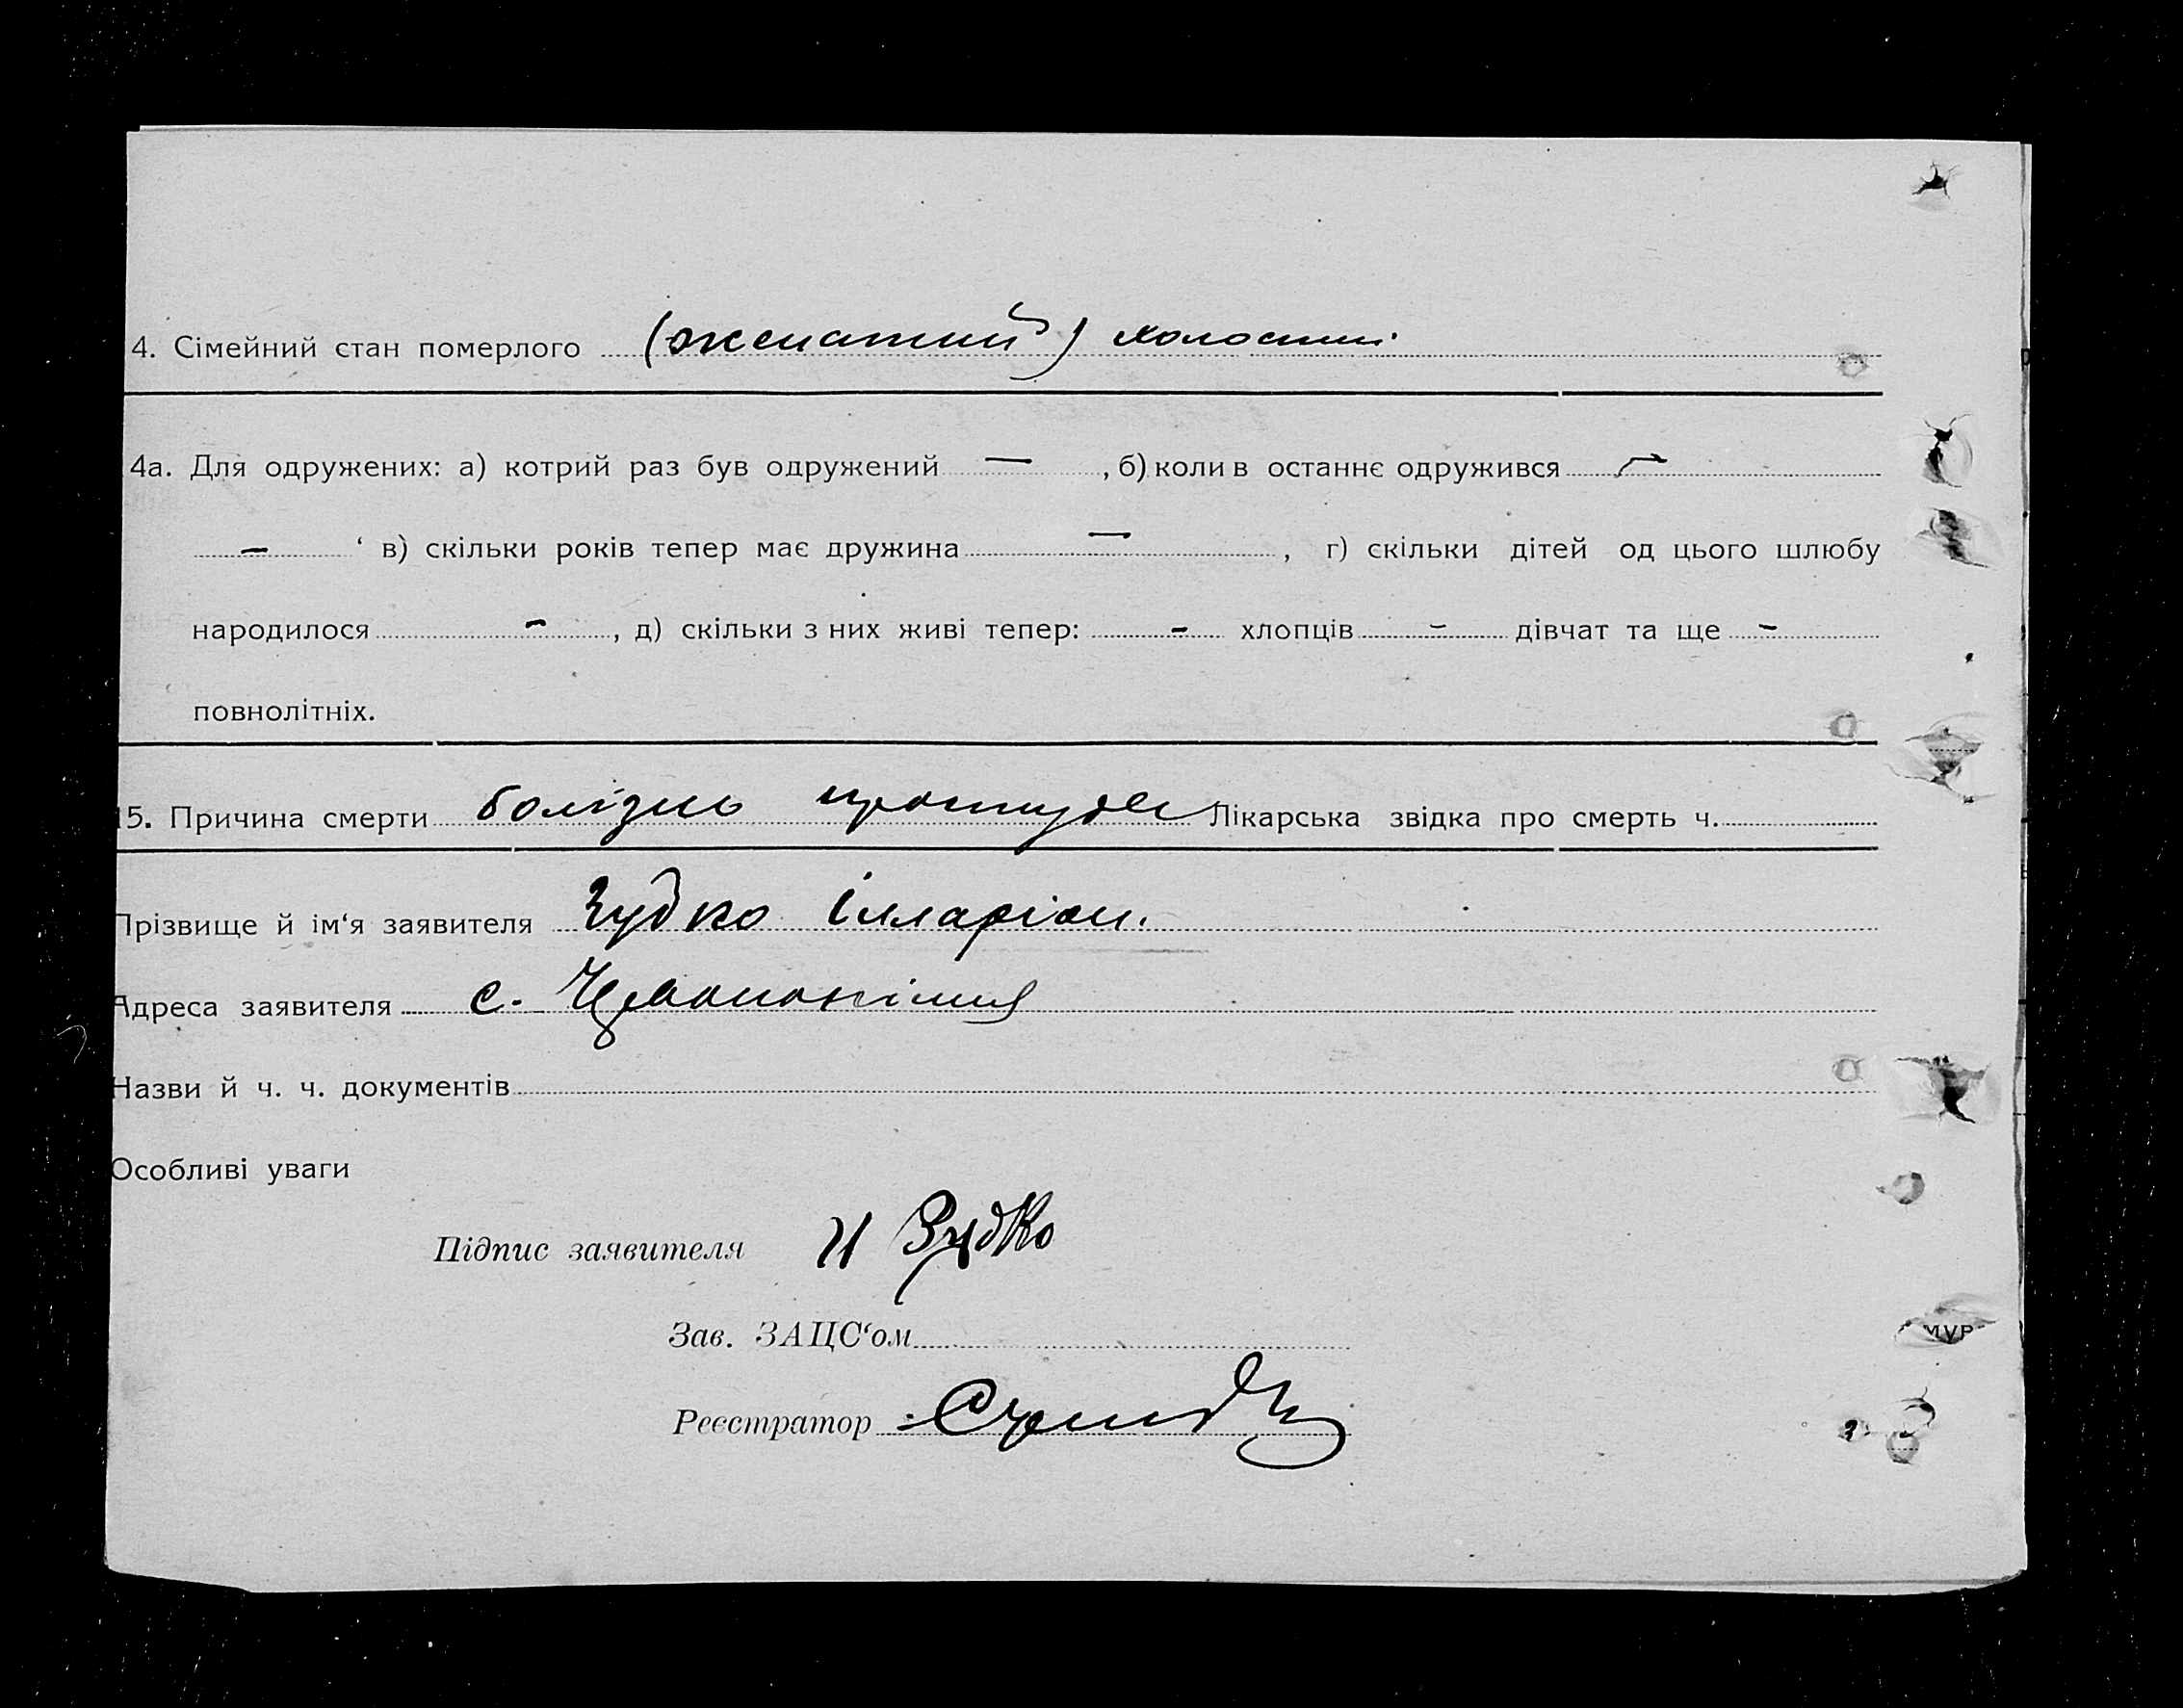 4. Сімейний стан померлого (жонатий) холостий
4а. Для одружених: а) котрий раз був одружений — , б) коли в останнє одружився —
— ‘ в) скільки років тепер має дружина — , г) скільки дітей од цього шлюбу
народилося - , д) скільки з них живі тепер: - хлопців - дівчат та ще -
повнолітніх.
15. Причина смерти болізнь простуда Лікарська звідка про смерть ч.
Прізвище й ім‘я заявителя Зубко Ілларіон.
Адреса заявителя с.
Назви й ч. ч. документів
Особливі уваги
Підпис заявителя И Зубко
Зав. ЗАЦС‘ом
Реєстратор